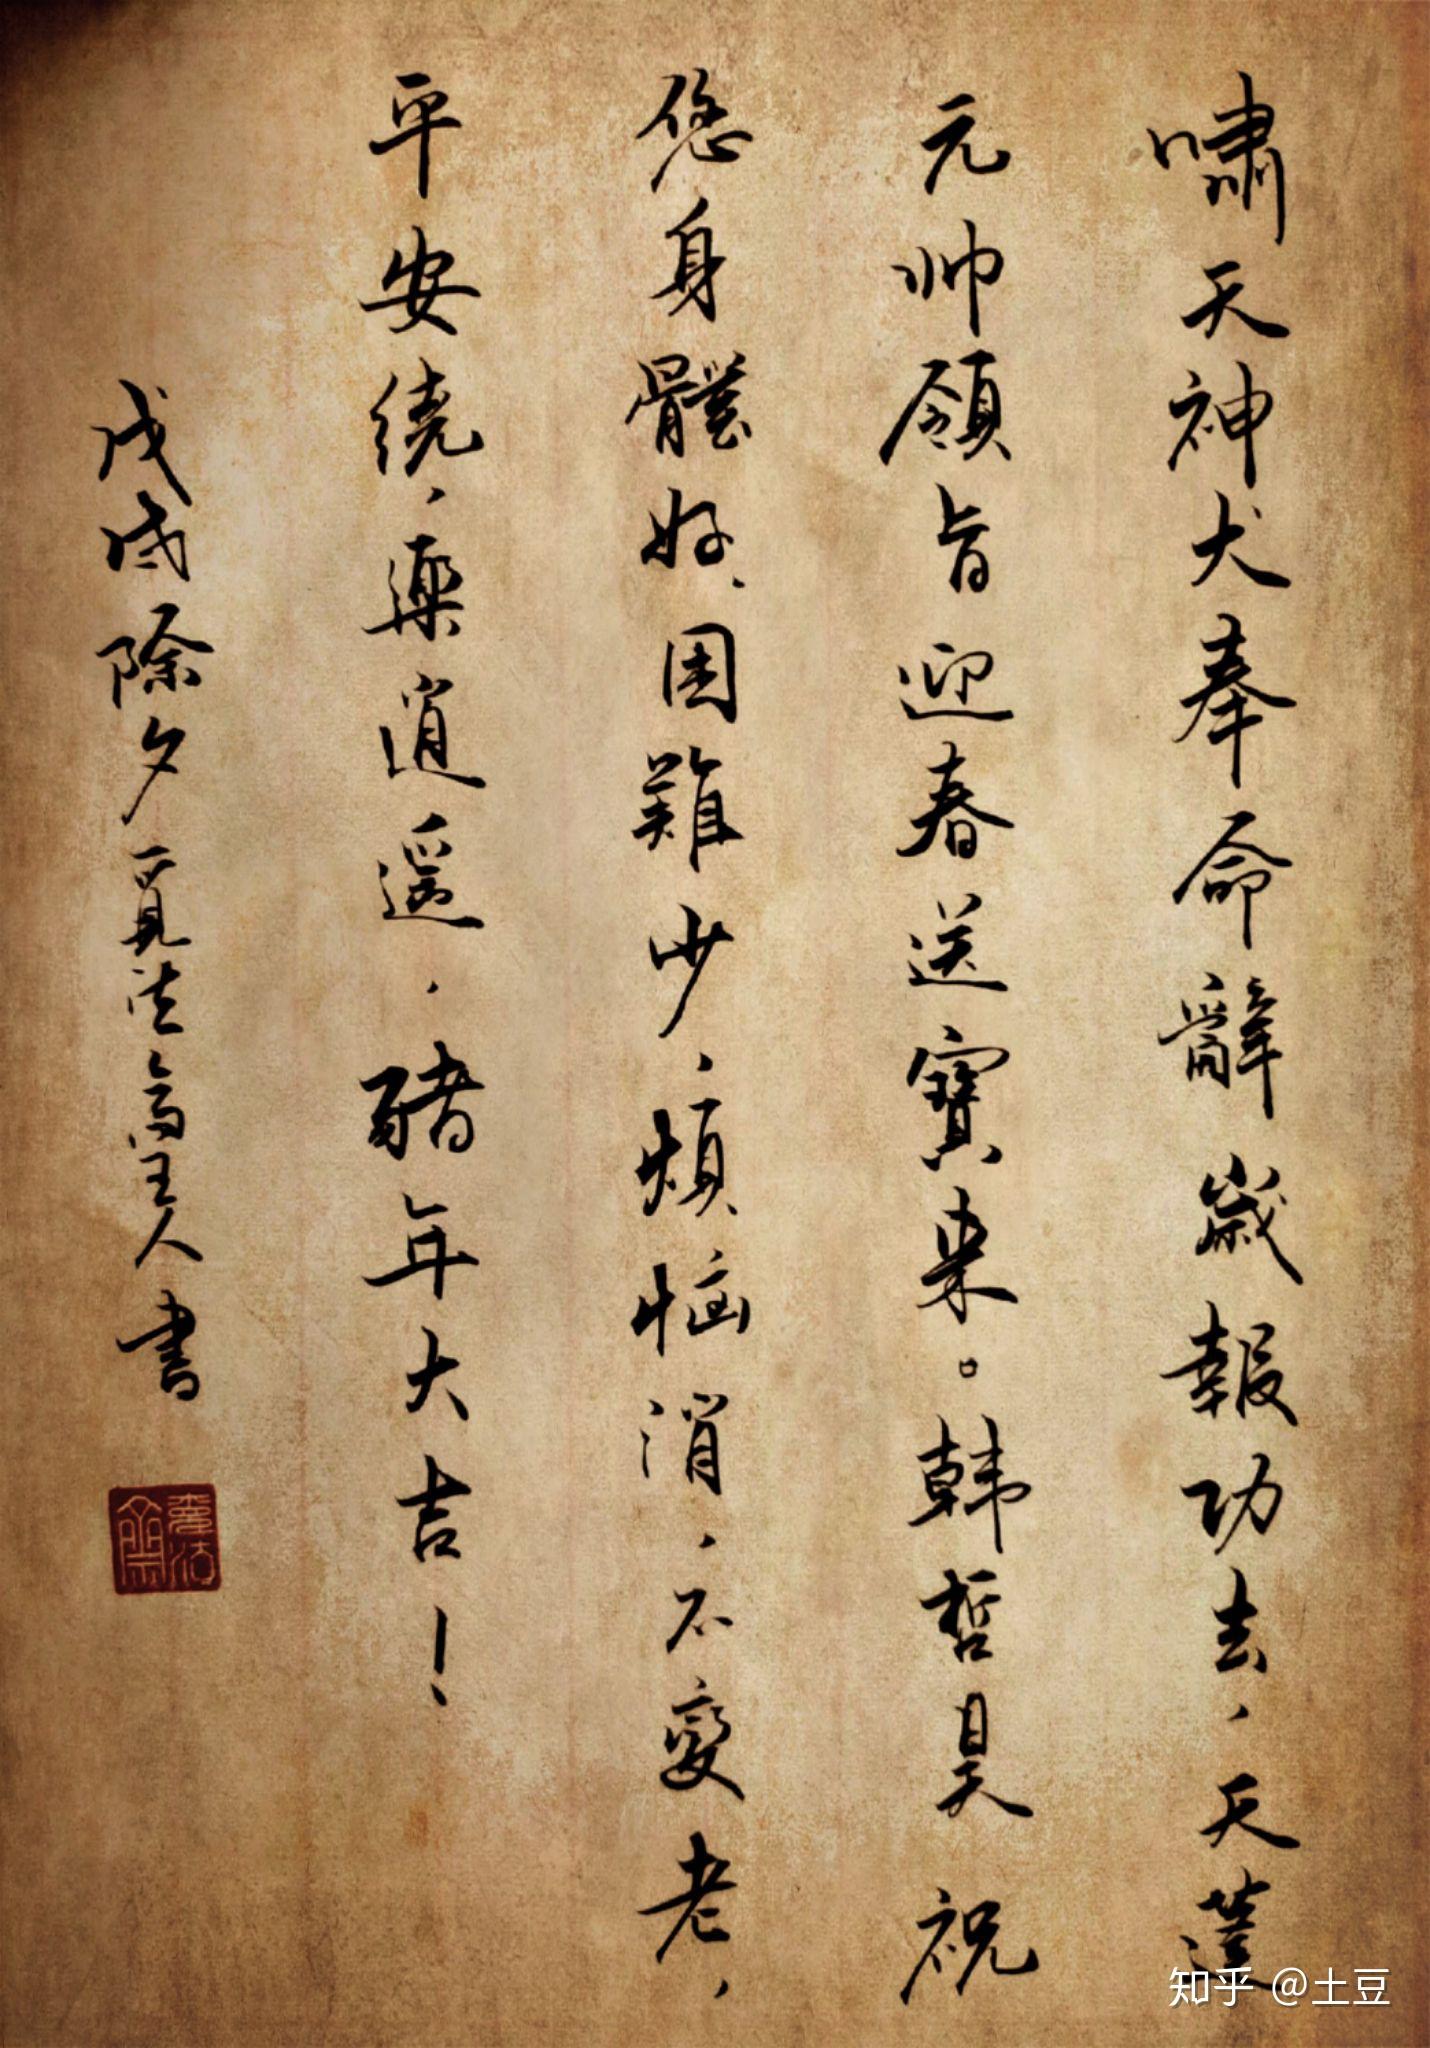 嘯天神犬奉命辭歲報功去，天蓬
元帅領旨迎春送寶来。韩哲昊祝
您身體好，困難少，煩惱消，不變老，
平安绕，藥逍遥，豬年大吉！
戊戌除夕覓法斋主人書
知乎 @土豆